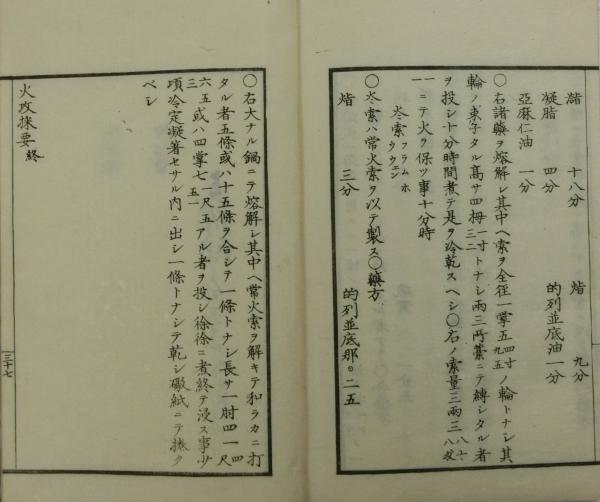 諸　十八分　焰　九分
凝脂　四分　的列並底油一分
亞麻仁油　一分
○右諸藥ヲ熔解シ其中ヘ索ヲ全徑一掌五四寸九五ノ輪トナシ其
輪ノ束子タル髙サ四拇一寸三二トナシ兩三所藁ニテ縛シタル者
ヲ投シ十分時間煮テ是ヲ冷乾スヘシ○右ノ索量三兩三八十八戔
一ニテ火ヲ保ツ事十分時
炎索フラムホウウエン
○炎索ハ常火索ヲ以テ製ス○藥方
焰　三分　的列並底那〇二五
○右大ナル鍋ニテ熔解シ其中ヘ常火索ヲ解キテ和ラカニ打
タル者五條或ハ十五條ヲ合シテ一條トナシ長サ一肘四一四尺
六五三或ハ四掌七五一尺五一アル者ヲ投シ徐徐ニ煮終テ浸ス事少
頃冷定凝著セサル內ニ出シ一條トナシテ乾シ礬紙ニテ捲ク
ベシ
火攻採要終
三十七